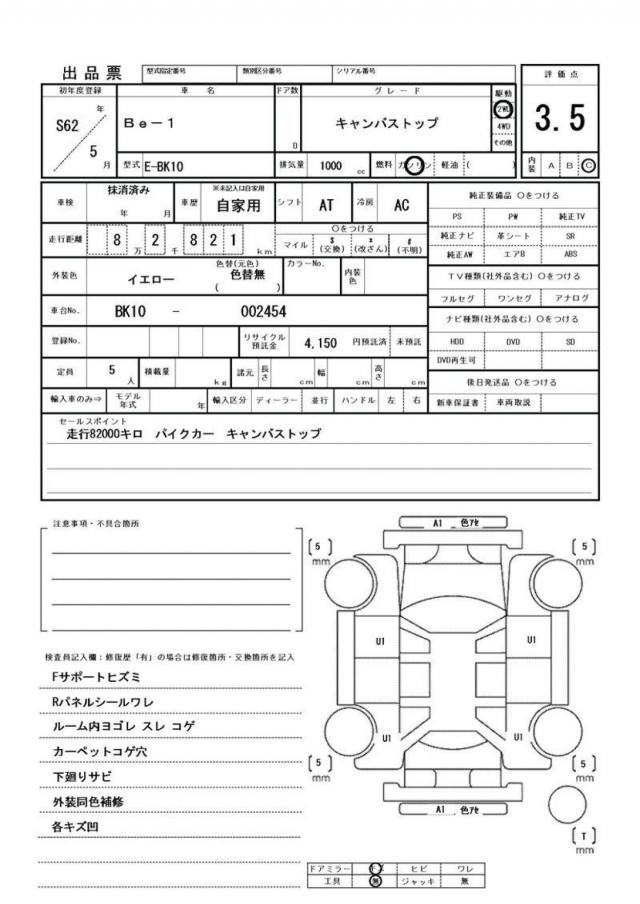 出品票 型式指定番号 類別区分番号 シリアル番号
初年度登録 車名 ドア数 グレード 駆動 評価点
S62 年 Be-1 D キャンバストップ 2WD 4WD その他 3.5
5 月 型式 E-BK10 排気量 1000 cc 燃料 ガソリン 軽油 ( ) 内装 A B C
車検 抹消済み 年 月 車歴 ※未記入は自家用 自家用 シフト AT 冷房 AC
走行距離 8 万 2 千 8 2 1 km 〇をつける マイル $ (交換) * (改ざん) # (不明)
外装色 イエロー 色替(元色) 色替無 ( ) カラーNo. 内装色
車台No. BK10 - 002454
登録No. リサイクル預託金 4,150 円預託済 未預託
定員 5 人 積載量 kg 諸元 長さ cm 幅 cm 高さ cm
輸入車のみ⇒ モデル年式 年 輸入区分 ディーラー 並行 ハンドル 左 右
純正装備品 〇をつける
PS PW 純正TV
純正ナビ 革シート SR
純正AW エアB ABS
TV種類(社外品含む) 〇をつける
フルセグ ワンセグ アナログ
ナビ種類(社外品含む) 〇をつける
HDD DVD SD
DVD再生可
後日発送品 〇をつける
新車保証書 車両取説
セールスポイント
走行82000キロ パイクカー キャンバストップ
注意事項・不具合箇所
検査員記入欄:修復歴「有」の場合は修復箇所・交換箇所を記入
Fサポートヒズミ
Rパネルシールワレ
ルーム内ヨゴレ スレ コゲ
カーペットコゲ穴
下廻りサビ
外装同色補修
各キズ凹
A1 色アセ
[5] mm [5] mm
U1 U1
U1 U1
[5] mm [5] mm
A1 色アセ
[T] mm
ドアミラー キズ ヒビ ワレ
工具 無 ジャッキ 無